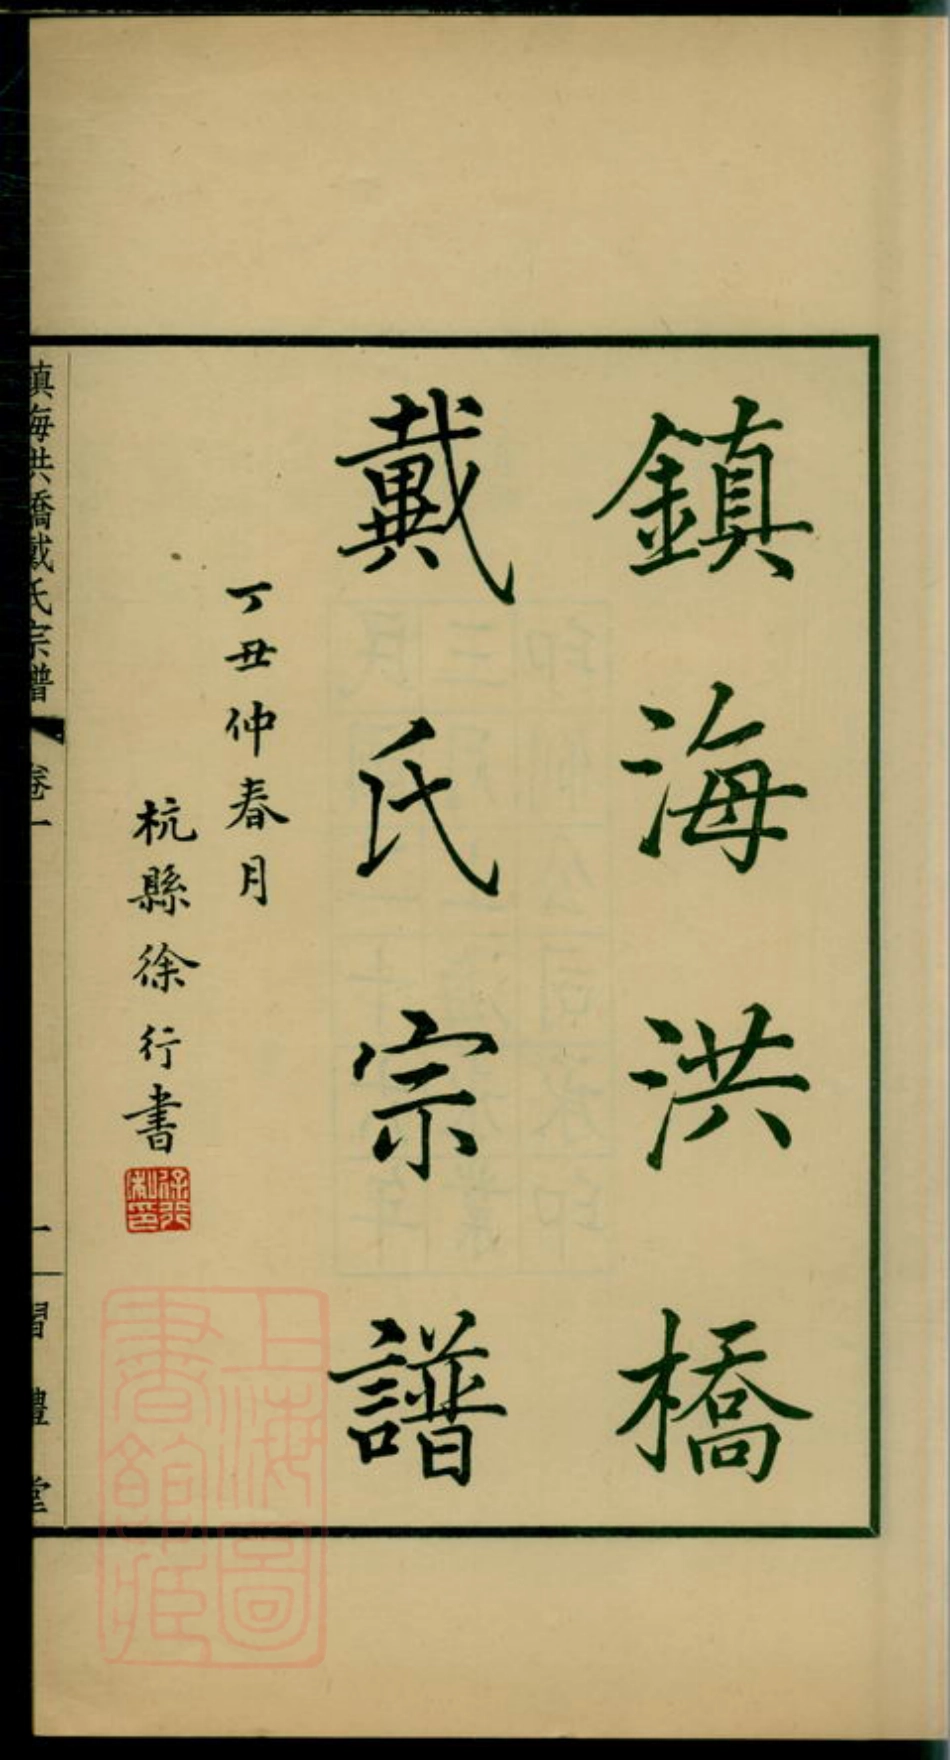 鎮海洪橋
戴氏宗譜
丁丑仲春月
杭縣徐行書
徐行私印
鎮海洪橋戴氏宗譜 卷一 一 習禮堂
上海圖書館藏